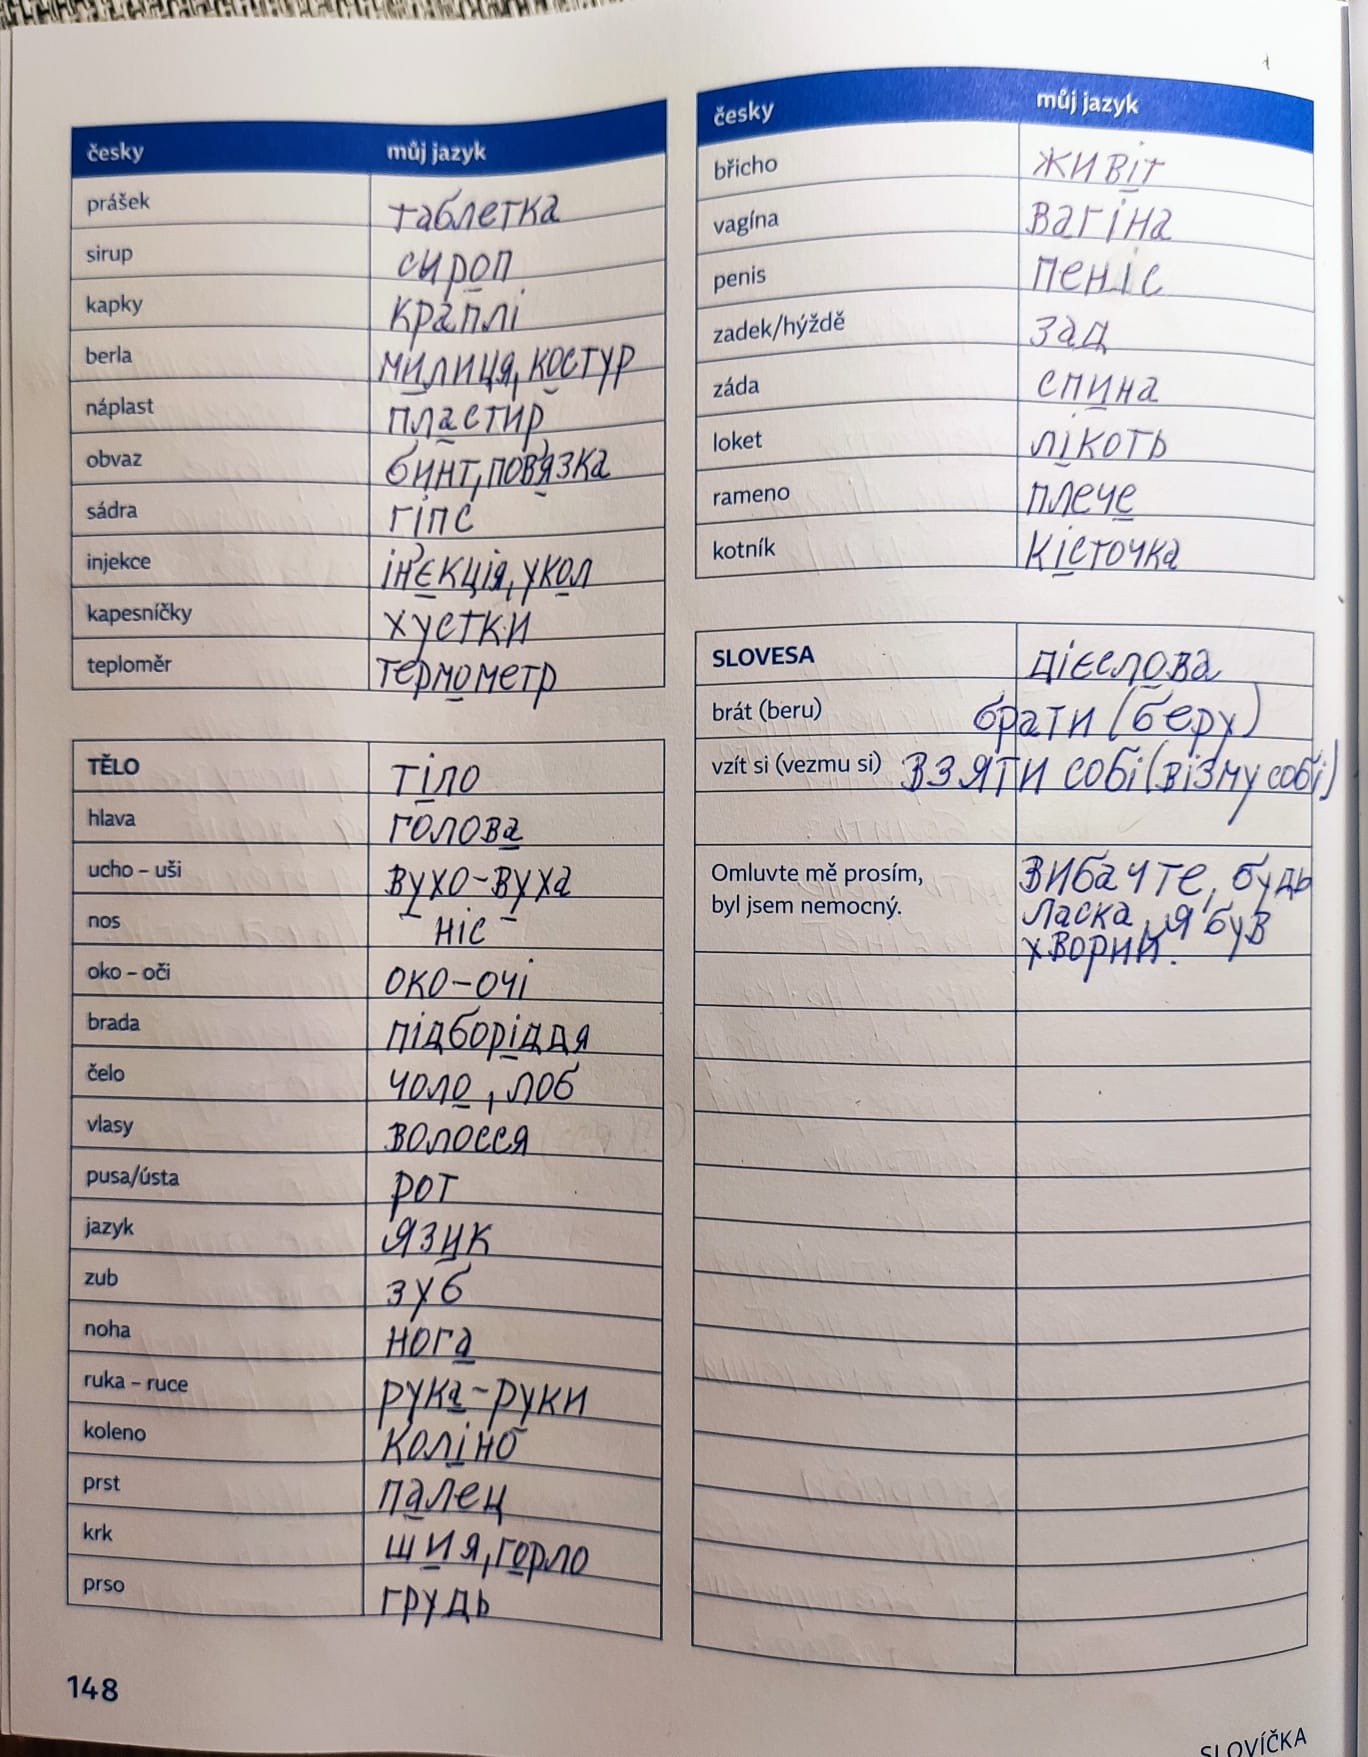 česky můj jazyk
prášek таблетка
sirup сироп
kapky краплі
berla милиця, костур
náplast пластир
obvaz бинт, пов'язка
sádra гіпс
injekce ін'єкція, укол
kapesníčky хустки
teploměr термометр
TĚLO тіло
hlava голова
ucho – uši вухо-вуха
nos ніс
oko – oči око-очі
brada підборіддя
čelo чоло, лоб
vlasy волосся
pusa/ústa рот
jazyk язик
zub зуб
noha нога
ruka – ruce рука-руки
koleno коліно
prst палец
krk шия, горло
prso грудь
148
česky můj jazyk
břicho живіт
vagína вагіна
penis пеніс
zadek/hýždě зад
záda спина
loket лікоть
rameno плече
kotník кісточка
SLOVESA дієслова
brát (beru) брати (беру)
vzít si (vezmu si) взяти собі (візму собі)
Omluvte mě prosím, вибачте, будь
byl jsem nemocný. ласка, я був
хворий.
SLOVÍČKA